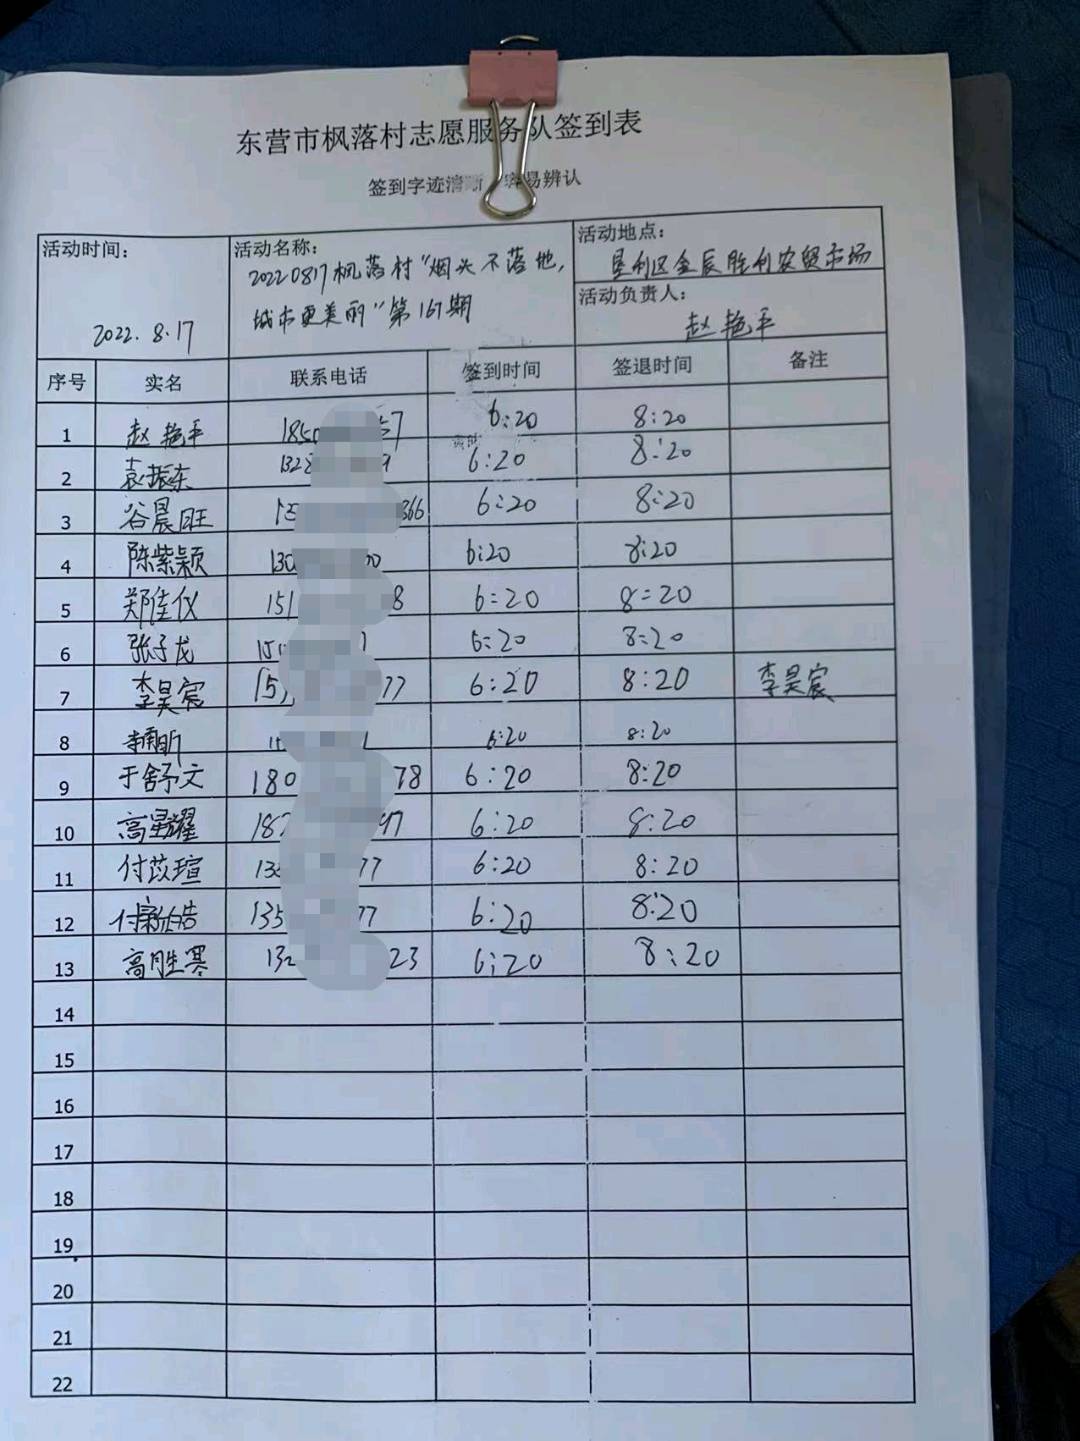 东营市枫落村志愿服务队签到表
签到字迹清晰 容易辨认
活动时间：
2022.8.17
活动名称：
20220817枫落村“烟头不落地，
城市更美丽”第167期
活动地点：
垦利区金辰胜利农贸市场
活动负责人：
赵艳平
序号 实名 联系电话 签到时间 签退时间 备注
1 赵艳平 185 57 6:20 8:20
2 袁振东 1328 9 6:20 8:20
3 谷晨旺 366 6:20 8:20
4 陈紫颖 130 00 6:20 8:20
5 郑佳仪 151 8 6:20 8:20
6 张子龙 6:20 8:20
7 李昊宸 15 77 6:20 8:20 李昊宸
8 6:20 8:20
9 于舒文 180 78 6:20 8:20
10 高星耀 187 97 6:20 8:20
11 付苡瑄 13 77 6:20 8:20
12 135 77 6:20 8:20
13 高胜寒 132 23 6:20 8:20
14
15
16
17
18
19
20
21
22